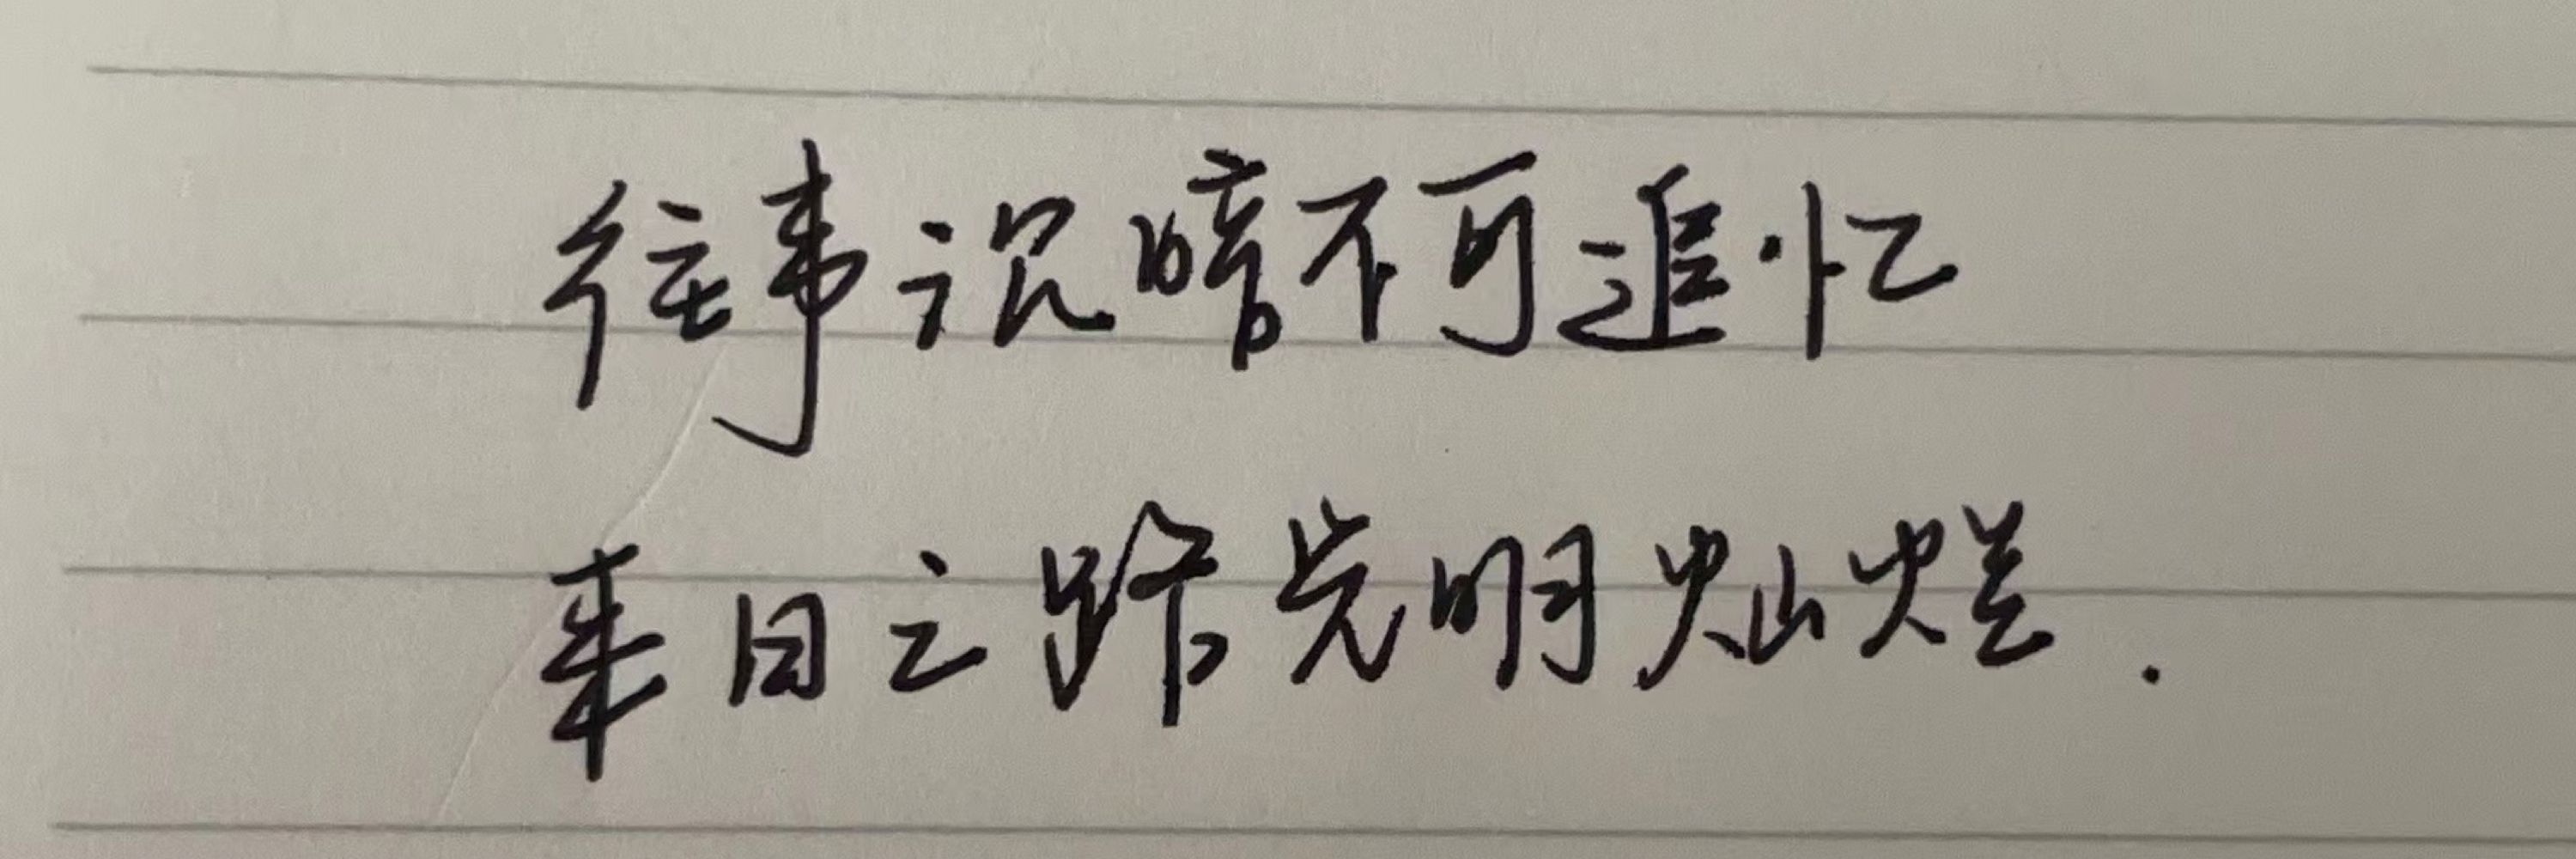 往事沉暗不可追忆
来日之路光明灿烂.